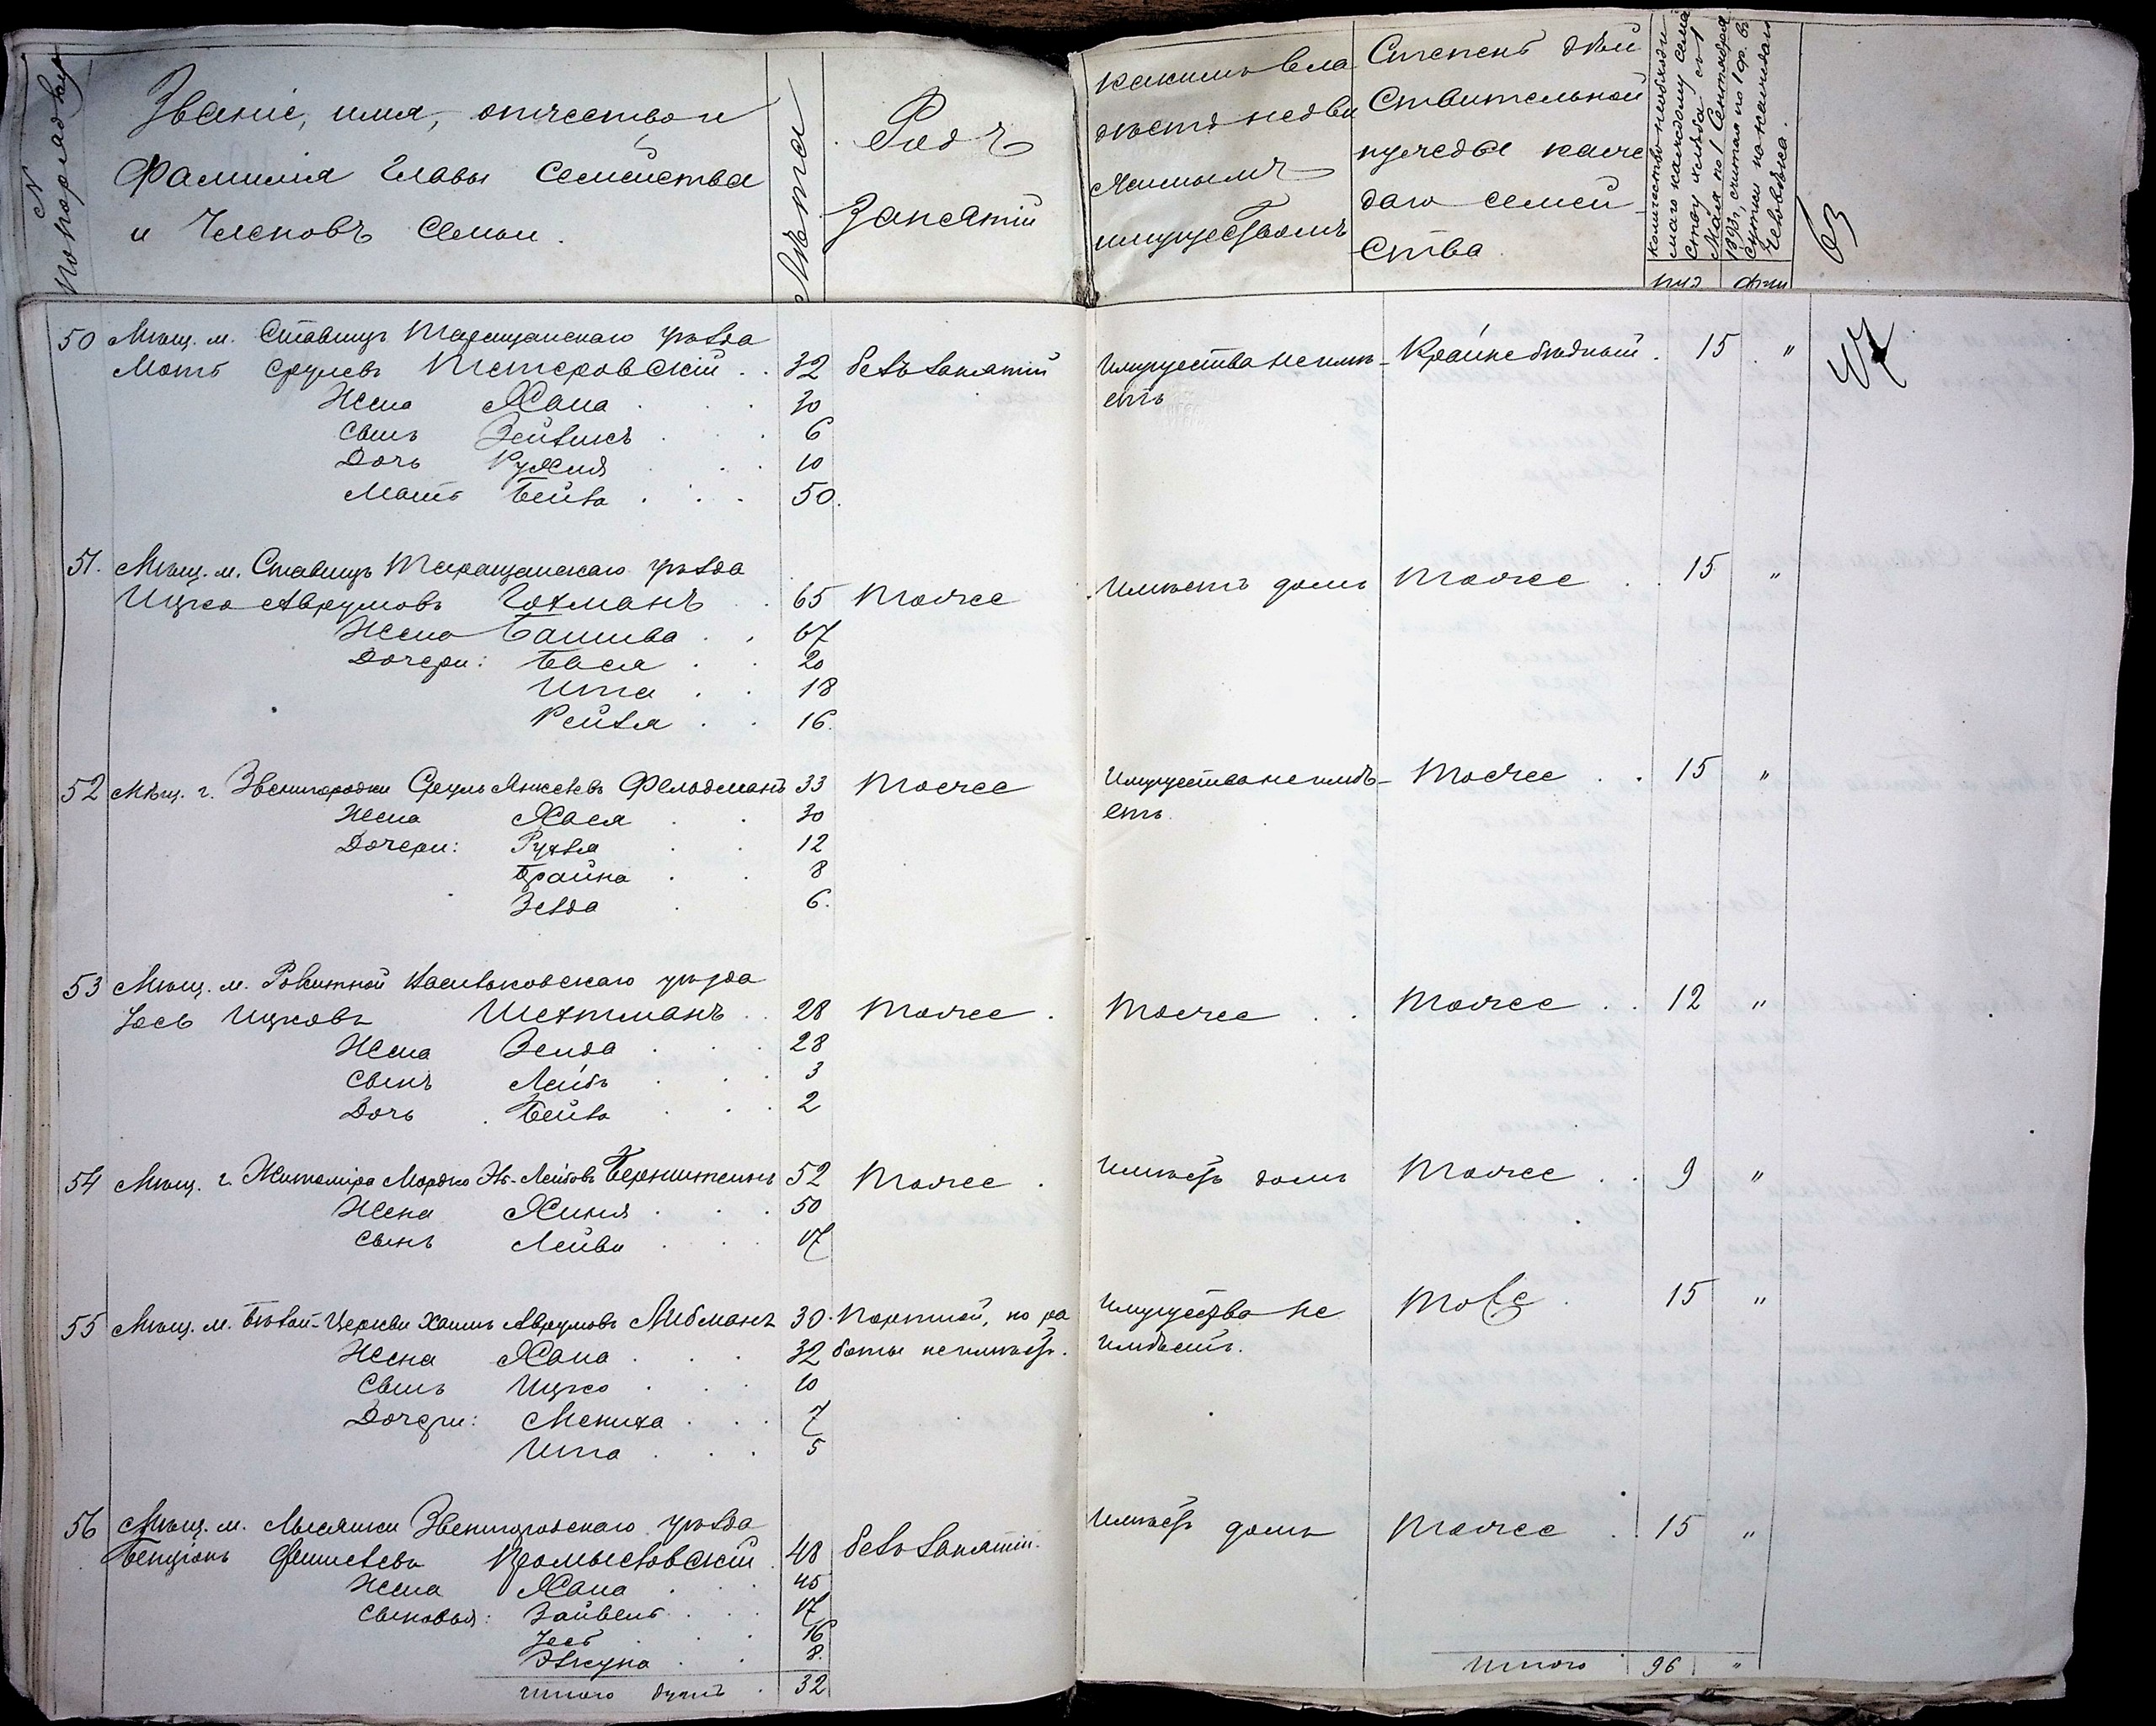 N
по порядку
Званіе, имя, отчество и
Фамилія Главы Семейства
и Членовъ Семьи.
Лѣта
Родъ
Занятій
Какимъ вла
дѣетъ недви
жимымъ
имуществомъ
Степень дѣй
ствительной
нужды каж
даго семей
ства
Количество необходи
маго каждому семей
ству хлѣба съ 1
Мая по 1 Сентября
1893 г., считая по 1 ф. въ
сутки на каждаго
человѣка.
пуд
фун
63
50 Мѣщ. м. Ставищъ Таращанскаго уѣзда
Мотъ Сруловъ Тетеровскій . . 32 безъ занятій Имущества не имѣ- Крайне бѣдный . 15 . "
Жена Хана . . . 30 етъ
Сынъ Зейликъ . . . 6
Дочь Рухля . . . 10
Мать Бейла . . . 50.
51. Мѣщ. м. Ставищъ Таращанскаго уѣзда
Ицко Аврумовъ Гохманъ . . 65 Тоже Имѣетъ домъ Тоже . . 15 "
Жена Башива . . 67
Дочери: Бася . . 20
Ита . . 18
Рейзя . . 16.
52 Мѣщ. г. Звенигородки Сруль Янкелевъ Фельдманъ 33 Тоже Имущества не имѣ- Тоже . . 15 "
Жена Хася . . 30 етъ.
Дочери: Рухля . . 12
Брайна . . 8
Зелда . 6.
53 Мѣщ. м. Рокитной Васильковскаго уѣзда
Іось Ицковъ Шехтманъ . . 28 Тоже . Тоже . . Тоже . . 12 "
Жена Зелда . . . 28
Сынъ Лейбъ . . . 3
Дочь Бейла . . . 2
54 Мѣщ. г. Житоміра Мордко Эль-Лейбовъ Бернштейнъ 52 Тоже . Имѣетъ домъ Тоже . . 9 "
Жена Хиня . . . 50
Сынъ Лейви . . . 17
55 Мѣщ. м. Бѣлой-Церкви Хаимъ Аврумовъ Либманъ 30. Портной, но ра Имущества не Тоже . 15 "
Жена Хана . . . 32 боты не имѣетъ. имѣетъ.
Сынъ Ицко . . . 10
Дочери: Мениха . . . 7
Ита . . . 5
56 Мѣщ. м. Лысянки Звенигородскаго уѣзда
Бенціонъ Фишелевъ 48 безъ занятій. Имѣетъ домъ Тоже . . 15 "
Жена Хана . . . 45
Сыновья: Зайвель . . . 17
Іось . . . 16
Элкуна . . 8.
Итого душъ . 32
Итого 96 "